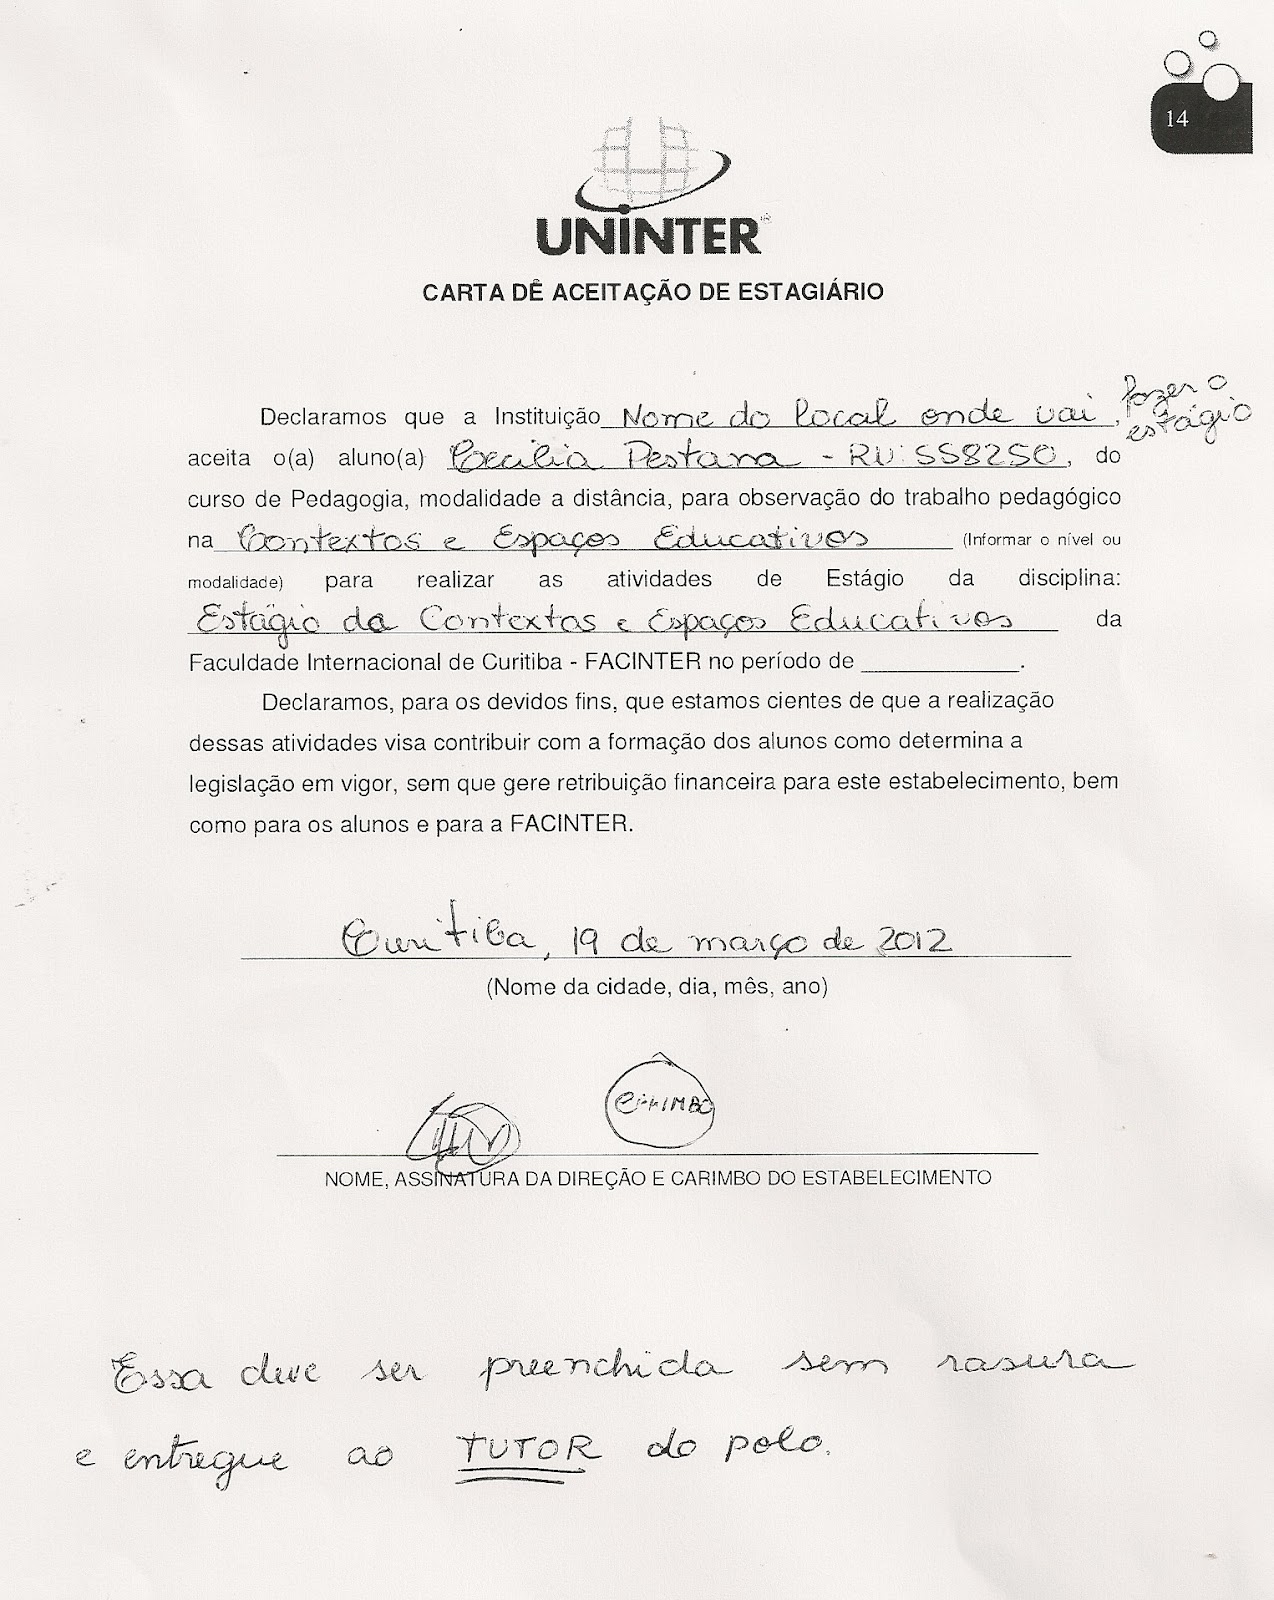 14
UNINTER
CARTA DÊ ACEITAÇÃO DE ESTAGIÁRIO
Declaramos que a Instituição Nome do local onde vai, fazer o estágio
aceita o(a) aluno(a) Cecilia Pestana - RU: 558250, do
curso de Pedagogia, modalidade a distância, para observação do trabalho pedagógico
na Contextos e Espaços Educativos (Informar o nível ou
modalidade) para realizar as atividades de Estágio da disciplina:
Estágio da Contextos e Espaços Educativos da
Faculdade Internacional de Curitiba - FACINTER no período de ____________.
Declaramos, para os devidos fins, que estamos cientes de que a realização
dessas atividades visa contribuir com a formação dos alunos como determina a
legislação em vigor, sem que gere retribuição financeira para este estabelecimento, bem
como para os alunos e para a FACINTER.
Curitiba, 19 de março de 2012
(Nome da cidade, dia, mês, ano)
CARIMBO
NOME, ASSINATURA DA DIREÇÃO E CARIMBO DO ESTABELECIMENTO
Essa deve ser preenchida sem rasura
e entregue ao TUTOR do polo.